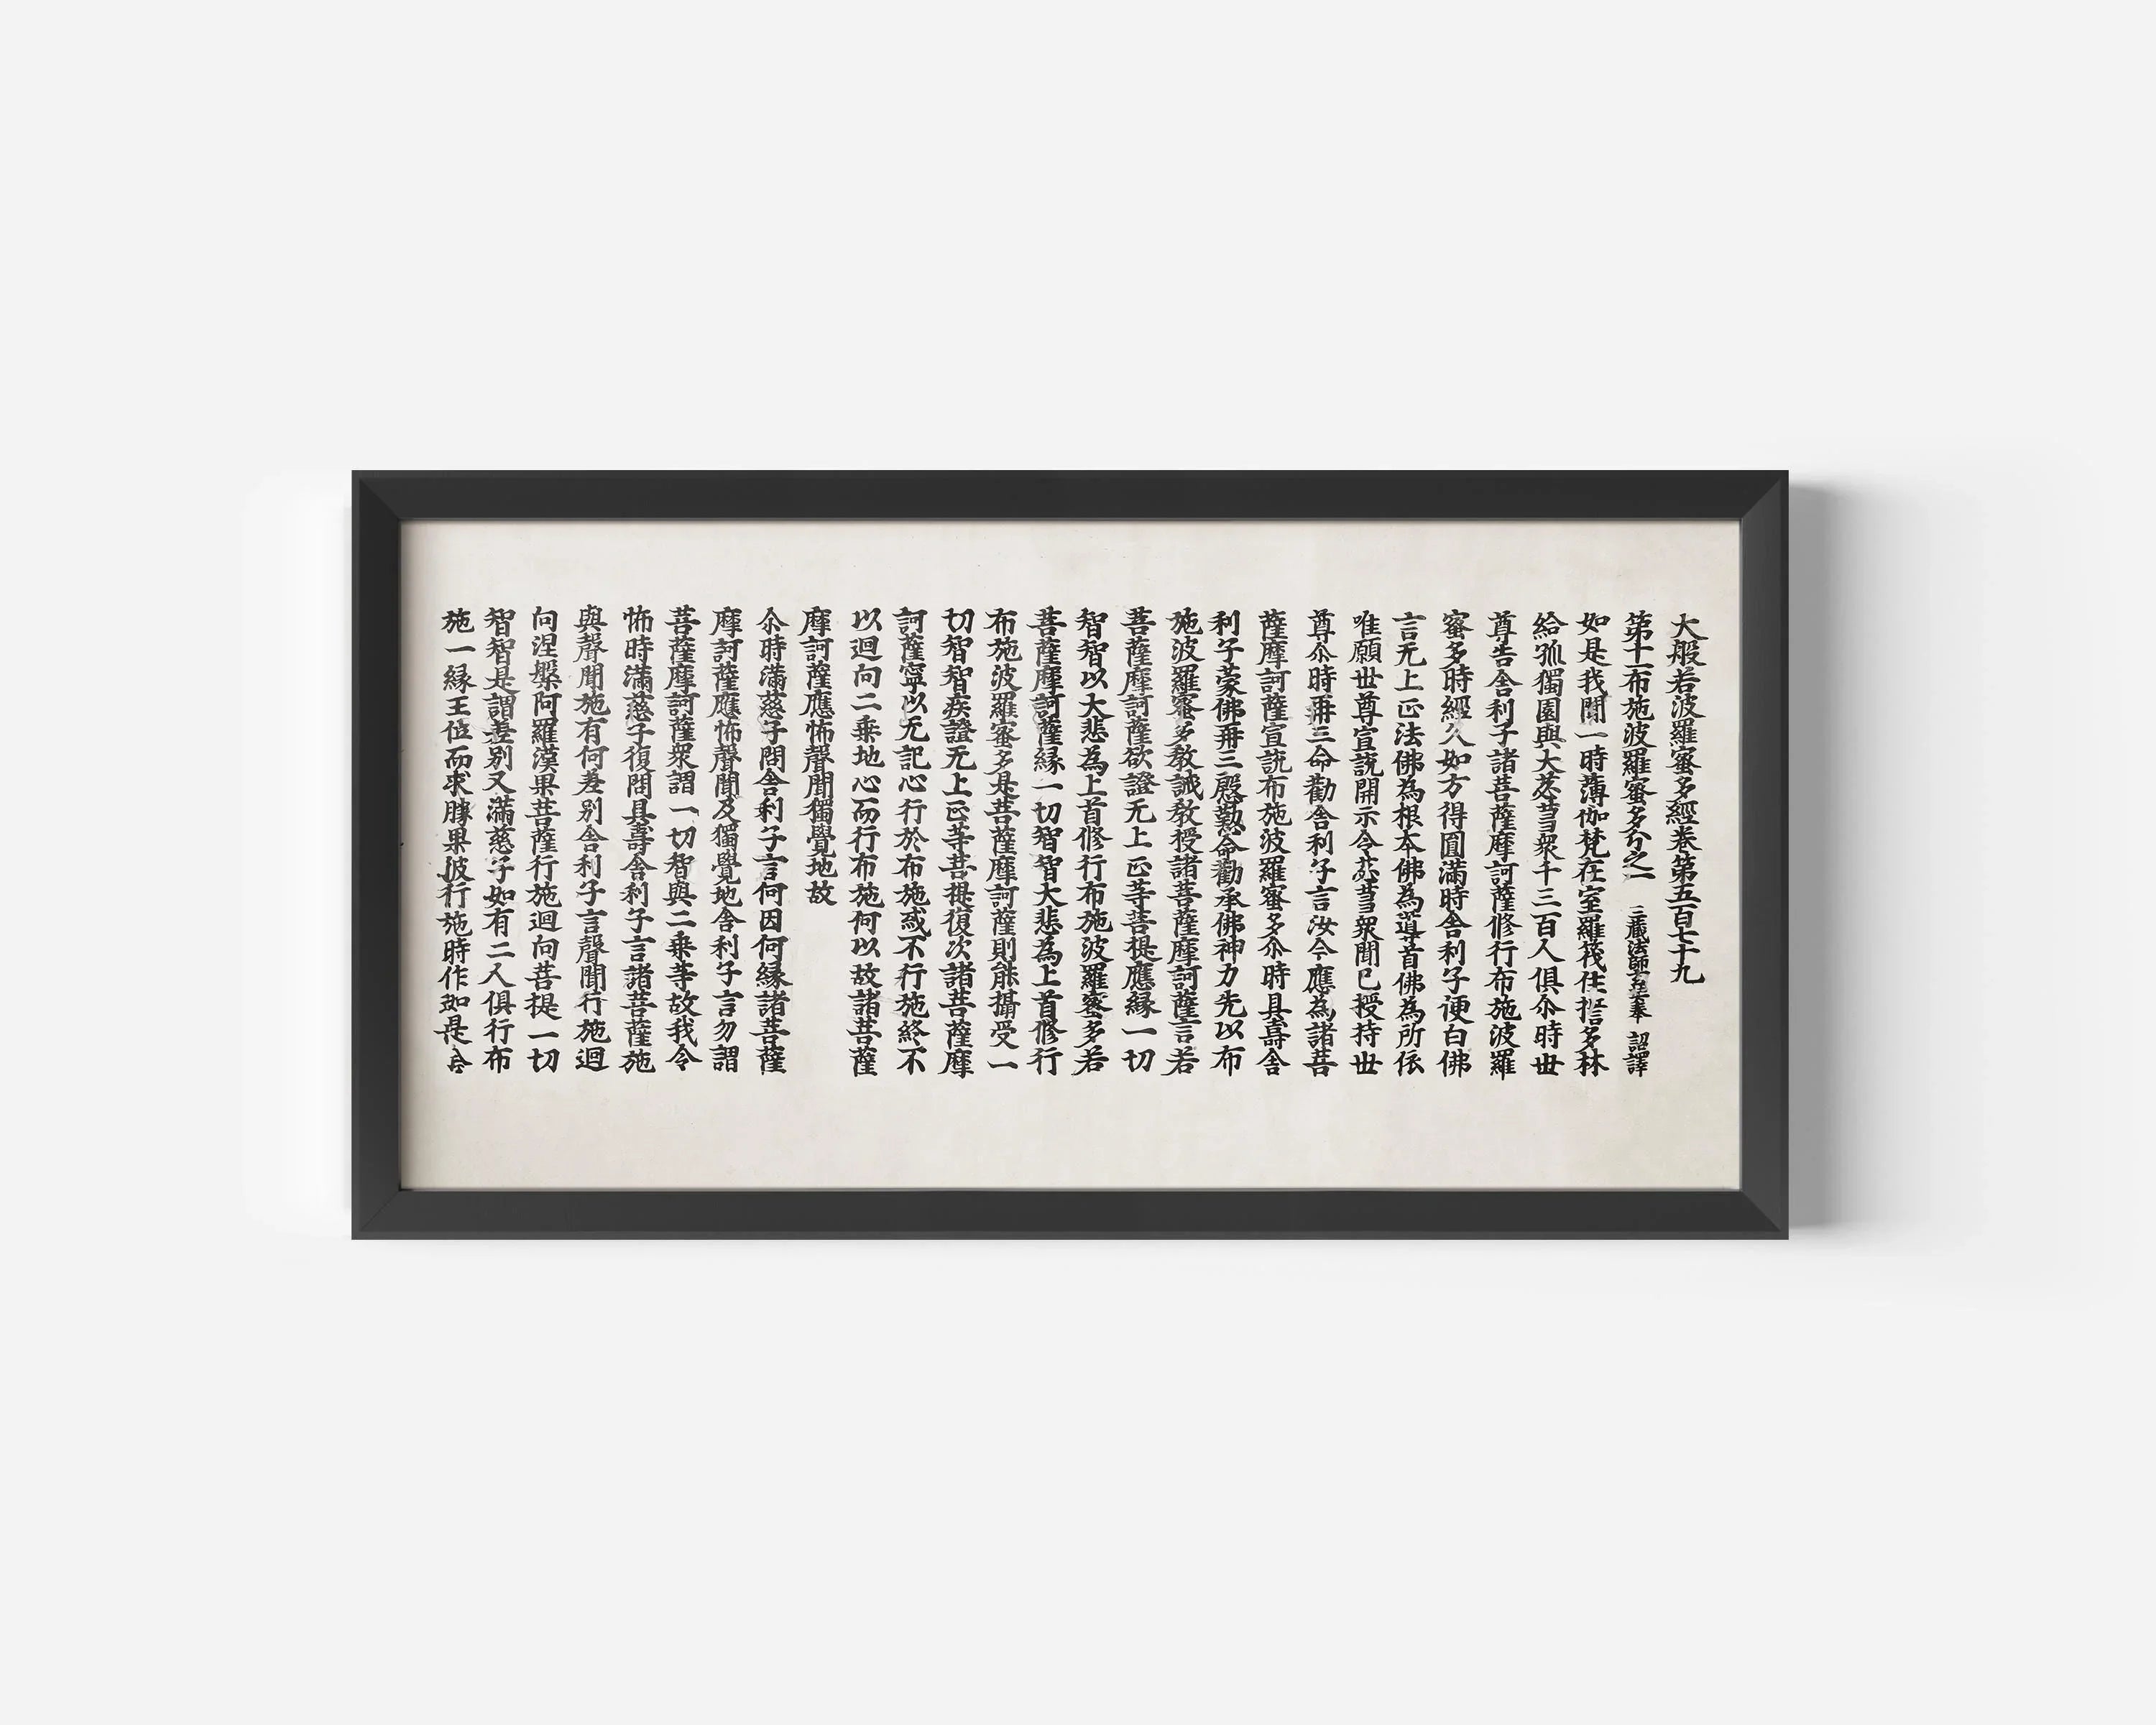 大般若波羅蜜多經卷第五百七十九
第十一布施波羅蜜多分之一 三藏法師玄奘奉 詔譯
如是我聞一時薄伽梵在室羅筏住誓多林
給孤獨園與大苾芻衆千二百人俱尒時世
尊告舍利子諸菩薩摩訶薩修行布施波羅
蜜多時經久如方得圓滿時舍利子便白佛
言无上正法佛為根本佛為導首佛為所依
唯願世尊宣說開示令苾芻衆聞已授持世
尊尒時再三命勸舍利子言汝今應為諸菩
薩摩訶薩宣說布施波羅蜜多尒時具壽舍
利子蒙佛再三慇懃命勸承佛神力先以布
施波羅蜜多教誡教授諸菩薩摩訶薩言若
菩薩摩訶薩欲證无上正等菩提應緣一切
智智以大悲為上首修行布施波羅蜜多若
菩薩摩訶薩緣一切智智大悲為上首修行
布施波羅蜜多是菩薩摩訶薩則能攝受一
切智智疾證无上正等菩提復次諸菩薩摩
訶薩寧以无記心行於布施或不行施終不
以迴向二乘地心而行布施何以故諸菩薩
摩訶薩應怖聲聞獨覺地故
尒時滿慈子問舍利子言何因何緣諸菩薩
摩訶薩應怖聲聞及獨覺地舍利子言勿謂
菩薩摩訶薩衆謂一切智與二乘等故我令
怖時滿慈子復問具壽舍利子言諸菩薩施
與聲聞施有何差別舍利子言聲聞行施迴
向涅槃阿羅漢果菩薩行施迴向菩提一切
智智是謂差別又滿慈子如有二人俱行布
施一緣王位而求勝果彼行施時作如是念